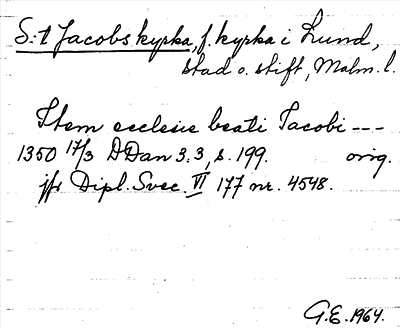 S:t Jacobs kyrka, f. kyrka i Lund,
stad o. stift, Malm. l.
Item ecclesie beati Jacobi ---
1350 17/3 DDan 3:3, s. 199. orig.
jfr Dipl. Svec. VI 177 nr. 4548.
G.E. 1964.